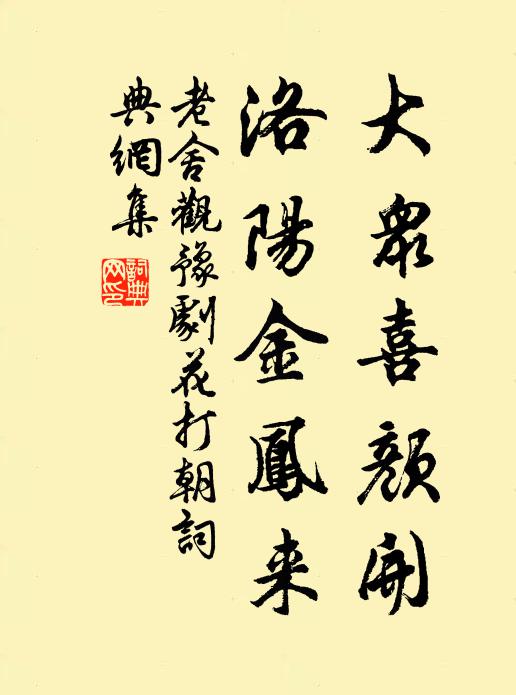 大眾喜顏開
洛陽金鳳来
老舍觀豫劇花打朝詞
典網集
詞典
网印